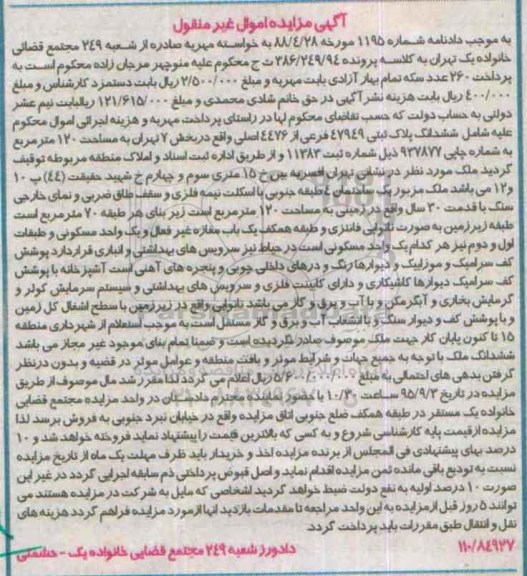 آگهی مزایده اموال غیر منقول
به موجب دادنامه شماره ۱۱۹۵ مورخه ۸۸/۴/۲۸ به خواسته مهریه صادره از شعبه ۲۴۹ مجتمع قضائی
خانواده یک تهران به کلاسه پرونده ۳۸۶/۲۴۹/۹۴ ت ج محکوم علیه منوچهر مرجان زاده محکوم است به
پرداخت ۲۶۰ عدد سکه تمام بهار آزادی بابت مهریه و مبلغ ۲/۵۰۰/۰۰۰ ریال بابت دستمزد کارشناس و مبلغ
۴۰۰/۰۰۰ ریال بابت هزینه نشر آگهی در حق خانم شادی محمدی و مبلغ ۱۲۱/۶۱۵/۰۰۰ ریالبابت نیم عشر
دولتی به حساب دولت که حسب تقاضای محکوم لها در راستای پرداخت مهریه و هزینه اجرائی اموال محکوم
علیه شامل ششدانگ پلاک ثبتی ۴۷۹۴۹ فرعی از ۴۴۷۶ اصلی واقع دربخش ۷ تهران به مساحت ۱۲۰ متر مربع
به شماره چاپی ۹۳۷۸۷۷ ذیل شماره ثبت ۱۱۳۸۳ و از طریق اداره ثبت اسناد و املاک منطقه مربوطه توقیف
گردید ملک مورد نظر در نشانی تهران افسریه بین خ ۱۵ متری سوم و چهارم خ شهید حقیقت (۴۴) پ ۱۰
و ۱۲ می باشد ملک مزبور یک ساختمان ۴ طبقه جنوبی با اسکلت نیمه فلزی و سقف طاق ضربی و نمای خارجی
سنگ با قدمت ۳۰ سال واقع در زمینی به مساحت ۱۲۰ مترمربع است زیر بنای هر طبقه ۷۰ مترمربع است
طبقه زیرزمین به صورت نانوایی فانتزی و طبقه همکف یک باب مغازه غیر فعال و یک واحد مسکونی و طبقات
اول و دوم نیز هر کدام یک واحد مسکونی است در حیاط نیز سرویس های بهداشتی و انباری قرار دارد پوشش
کف سرامیک و موزاییک و دیوارها رنگ و درهای داخلی چوبی و پنجره های آهنی است آشپزخانه با پوشش
کف سرامیک دیوارها کاشیکاری و دارای کابینت فلزی و سرویس های بهداشتی و سیستم سرمایش کولر و
گرمایش بخاری و آبگرمکن و با آب و برق و گاز می باشد نانوایی واقع در زیر زمین با سطح اشغال کل زمین
و با پوشش کف و دیوار سنگ و با انشعاب آب و برق و گاز مستقل است به موجب استعلام از شهرداری منطقه
۱۵ تا کنون پایان کار جهت ملک موصوف صادر نگردیده است و ضمنا تمام بنای موجود غیر مجاز می باشد
ششدانگ ملک با توجه به جمیع جهات و شرایط موثر و بافت منطقه و عوامل موثر در قضیه و بدون درنظر
گرفتن بدهی های احتمالی به مبلغ ۵/۶۰۰/۰۰۰/۰۰۰ ریال اعلام می گردد لذا مقرر شد مال موصوف از طریق
مزایده در تاریخ ۹۵/۹/۳ ساعت ۱۰/۳۰ با حضور نماینده محترم دادستان در واحد مزایده مجتمع قضایی
خانواده یک مستقر در طبقه همکف ضلع جنوبی اتاق مزایده واقع در خیابان نبرد جنوبی به فروش برسد لذا
مزایده ازقیمت پایه کارشناسی شروع و به کسی که بالاترین قیمت را پیشنهاد نماید فروخته خواهد شد و ۱۰
درصد بهای پیشنهادی فی المجلس از برنده مزایده اخذ و خریدار باید ظرف مهلت یک ماه از تاریخ مزایده
نسبت به تودیع باقی مانده ثمن مزایده اقدام نماید و اصل قبوض پرداختی ذم سابقه اجرایی گردد در غیر این
صورت ۱۰ درصد اولیه به نفع دولت ضبط خواهد گردید اشخاصی که مایل به شرکت در مزایده هستند می
توانند ۵ روز قبل ازمزایده به این واحد مراجعه تا مقدمات بازدید آنها ازمورد مزایده فراهم گردد هزینه های
نقل و انتقال طبق مقررات باید پرداخت گردد.
۱۱۰/۸۴۹۲۷ دادورز شعبه ۲۴۹ مجتمع قضایی خانواده یک - حشمتی